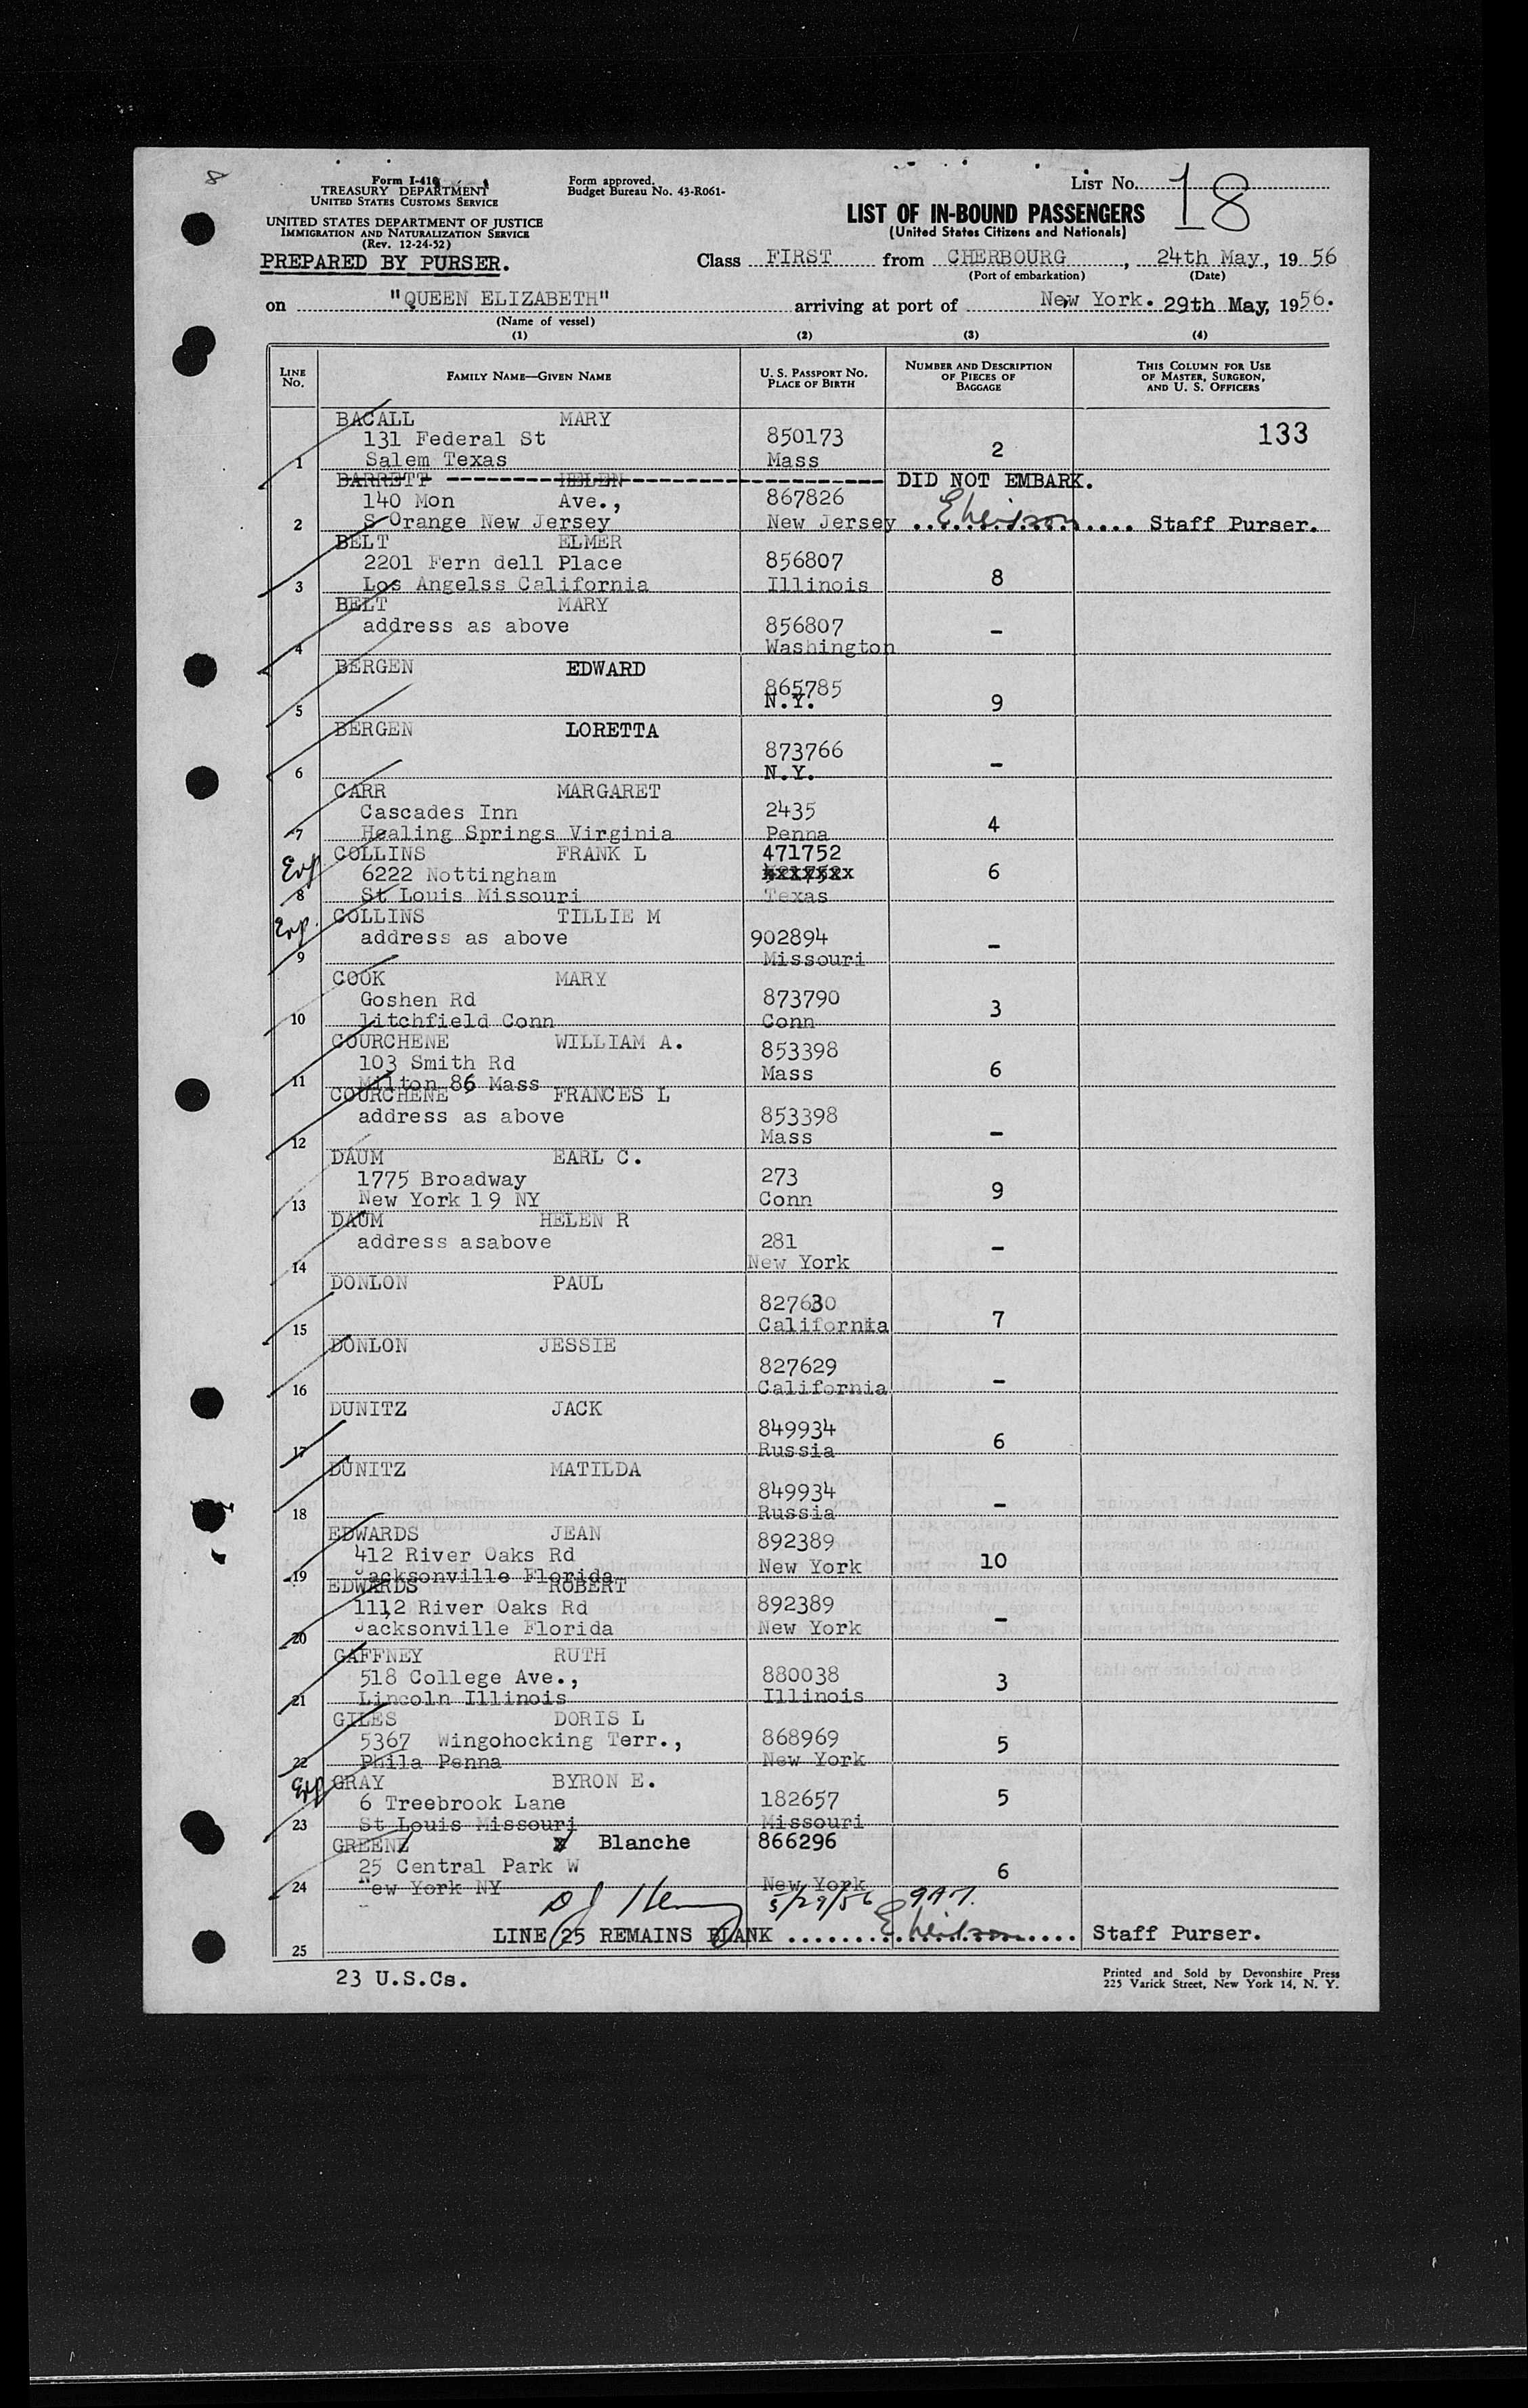 8
Form I-418
TREASURY DEPARTMENT
UNITED STATES CUSTOMS SERVICE
UNITED STATES DEPARTMENT OF JUSTICE
IMMIGRATION AND NATURALIZATION SERVICE
(Rev. 12-24-52)
PREPARED BY PURSER.
Form approved.
Budget Bureau No. 43-R061-
LIST No. 18
LIST OF IN-BOUND PASSENGERS
(United States Citizens and Nationals)
Class FIRST from CHERBOURG, 24th May, 1956
(Port of embarkation) (Date)
on "QUEEN ELIZABETH" arriving at port of New York. 29th May, 1956.
(Name of vessel)
(1) (2) (3) (4)
LINE No. FAMILY NAME—GIVEN NAME U. S. PASSPORT NO. PLACE OF BIRTH NUMBER AND DESCRIPTION OF PIECES OF BAGGAGE THIS COLUMN FOR USE OF MASTER, SURGEON, AND U. S. OFFICERS
BACALL MARY
131 Federal St 850173 2 133
1 Salem Texas Mass
BARRETT HELEN DID NOT EMBARK.
140 Mon Ave., 867826
2 S Orange New Jersey New Jersey Staff Purser.
BELT ELMER
2201 Fern dell Place 856807 8
3 Los Angelss California Illinois
BELT MARY
address as above 856807 -
4 Washington
BERGEN EDWARD
865785
5 N.Y. 9
BERGEN LORETTA
873766 -
6 N.Y.
CARR MARGARET
Cascades Inn 2435 4
7 Healing Springs Virginia Penna
COLLINS FRANK L 471752
6222 Nottingham 6
8 St Louis Missouri Texas
COLLINS TILLIE M
address as above 902894 -
9 Missouri
COOK MARY
Goshen Rd 873790 3
10 litchfield Conn Conn
COURCHENE WILLIAM A.
103 Smith Rd 853398 6
11 Milton 86 Mass Mass
COURCHENE FRANCES L
address as above 853398 -
12 Mass
DAUM EARL C.
1775 Broadway 273 9
13 New York 19 NY Conn
DAUM HELEN R
address asabove 281 -
14 New York
DONLON PAUL
827630 7
15 California
DONLON JESSIE
827629 -
16 California
DUNITZ JACK
849934 6
17 Russia
DUNITZ MATILDA
849934 -
18 Russia
EDWARDS JEAN
412 River Oaks Rd 892389 10
19 Jacksonville Florida New York
EDWARDS ROBERT
1112 River Oaks Rd 892389 -
20 Jacksonville Florida New York
GAFFNEY RUTH
518 College Ave., 880038 3
21 Lincoln Illinois Illinois
GILES DORIS L
5367 Wingohocking Terr., 868969 5
22 Phila Penna New York
GRAY BYRON E.
6 Treebrook Lane 182657 5
23 St Louis Missouri Missouri
GREENE Blanche 866296
25 Central Park W 6
24 New York NY New York
5/29/56
LINE 25 REMAINS BLANK Staff Purser.
25
23 U.S.Cs.
Printed and Sold by Devonshire Press
225 Varick Street, New York 14, N. Y.